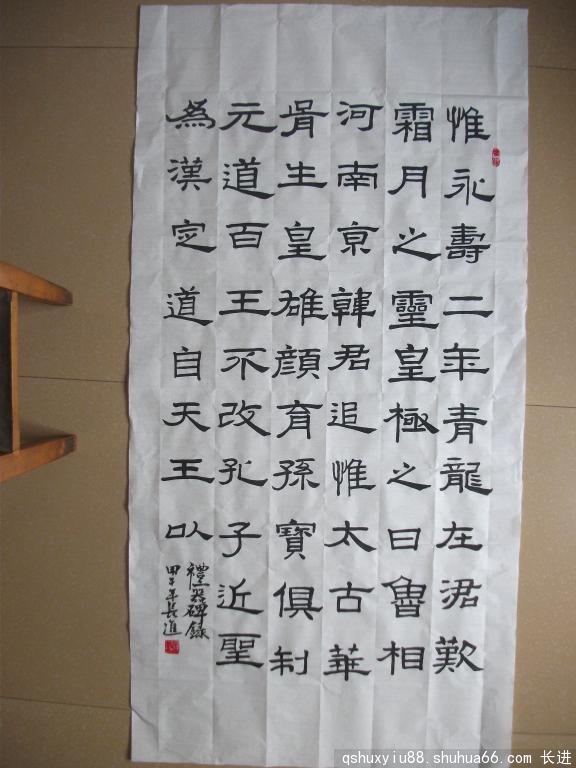 惟永壽二年青龍在涒歎
霜月之靈皇極之日魯相
河南京韓君追惟太古華
胥生皇雄顏育孫寶俱制
元道百王不改孔子近聖
為漢定道自天王以
禮器碑錄
甲年長進
qshuxyiu88.shuhua66.com 长进